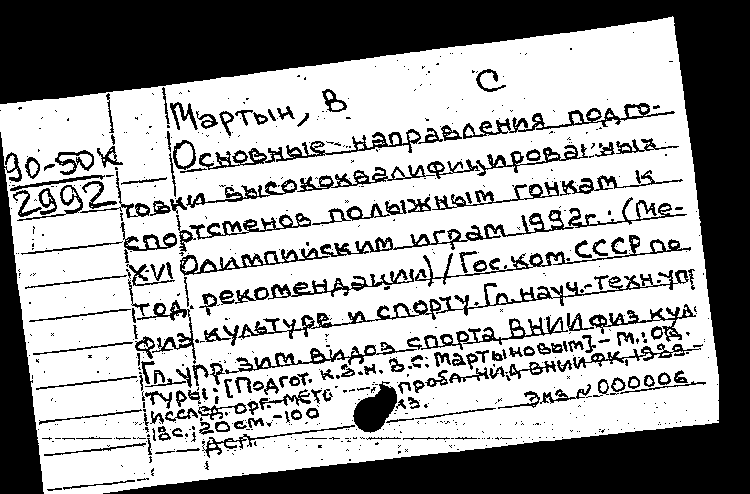 С
Мартын, В
90-50К
2992
Основные направления подго-
товки высококвалифицированных
спортсменов по лыжным гонкам к
XVI Олимпийским играм 1992г.: (Ме-
тод. рекомендации) / Гос. ком. СССР по
физ. культуре и спорту. Гл. науч.-техн. упр
Гл. упр. зим. видов спорта, ВНИИ физ. куль
туры; [Подгот. к.э.н. В.С. Мартыновым]. - М.: Отд.
исслед. орг.-мето пробл. НИД ВНИИФК, 1989.-
18с.; 20см.-100 кз.
ДСП. Экз. № 000006